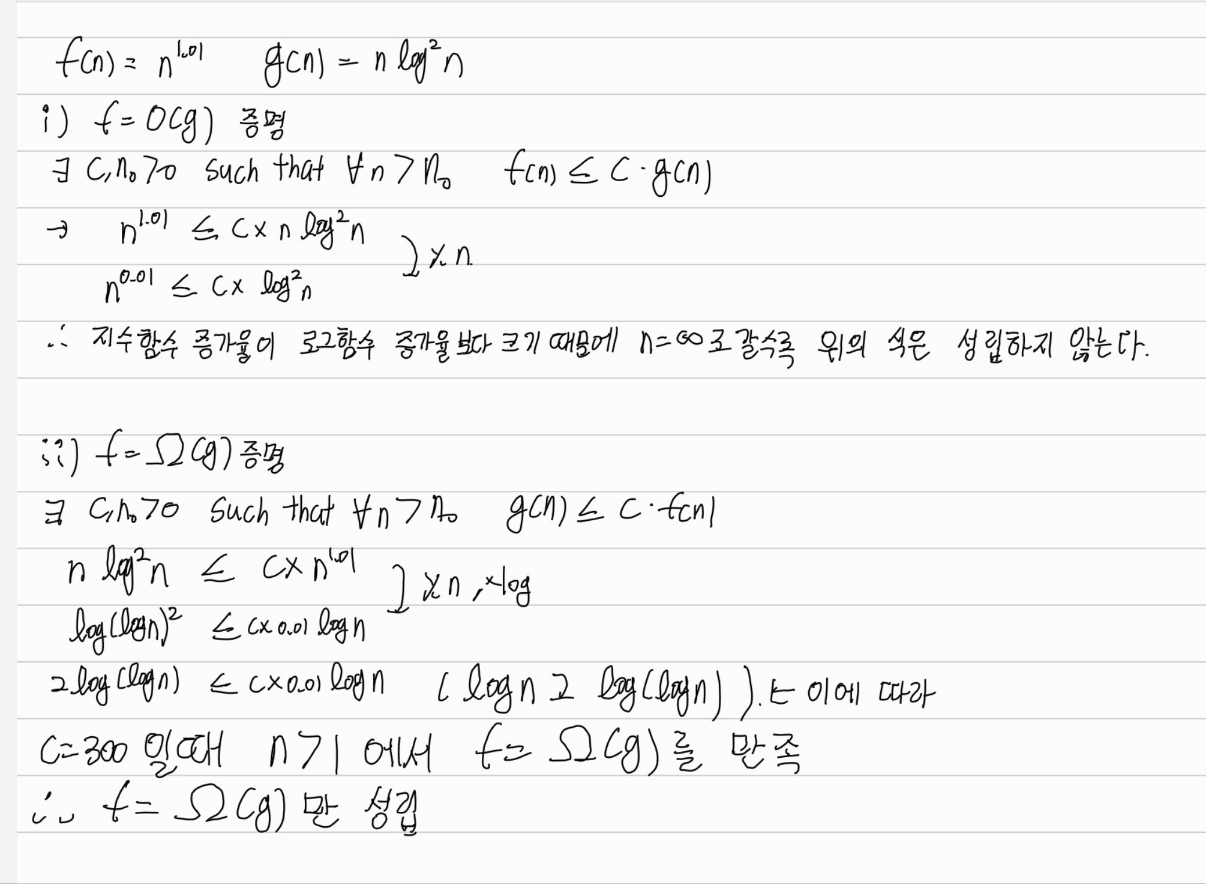 f(n) = n^1.01   g(n) = n log²n
i) f = O(g) 증명
∃ C, n₀ > 0 such that ∀n > n₀   f(n) ≤ C · g(n)
→ n^1.01 ≤ C × n log²n
n^0.01 ≤ C × log²n   ) ⁒ n
∴ 지수함수 증가율이 로그함수 증가율보다 크기 때문에 n=∞로 갈수록 위의 식은 성립하지 않는다.
ii) f = Ω(g) 증명
∃ C, n₀ > 0 such that ∀n > n₀   g(n) ≤ C · f(n)
n log²n ≤ C × n^1.01
log(logn)² ≤ C × 0.01 logn   ] ⁒ n, × log
2 log(logn) ≤ C × 0.01 logn   ( logn ≥ log(logn) ). 는 이에 따라
C = 300 일때 n > 1 에서 f = Ω(g) 를 만족
∴ f = Ω(g) 만 성립